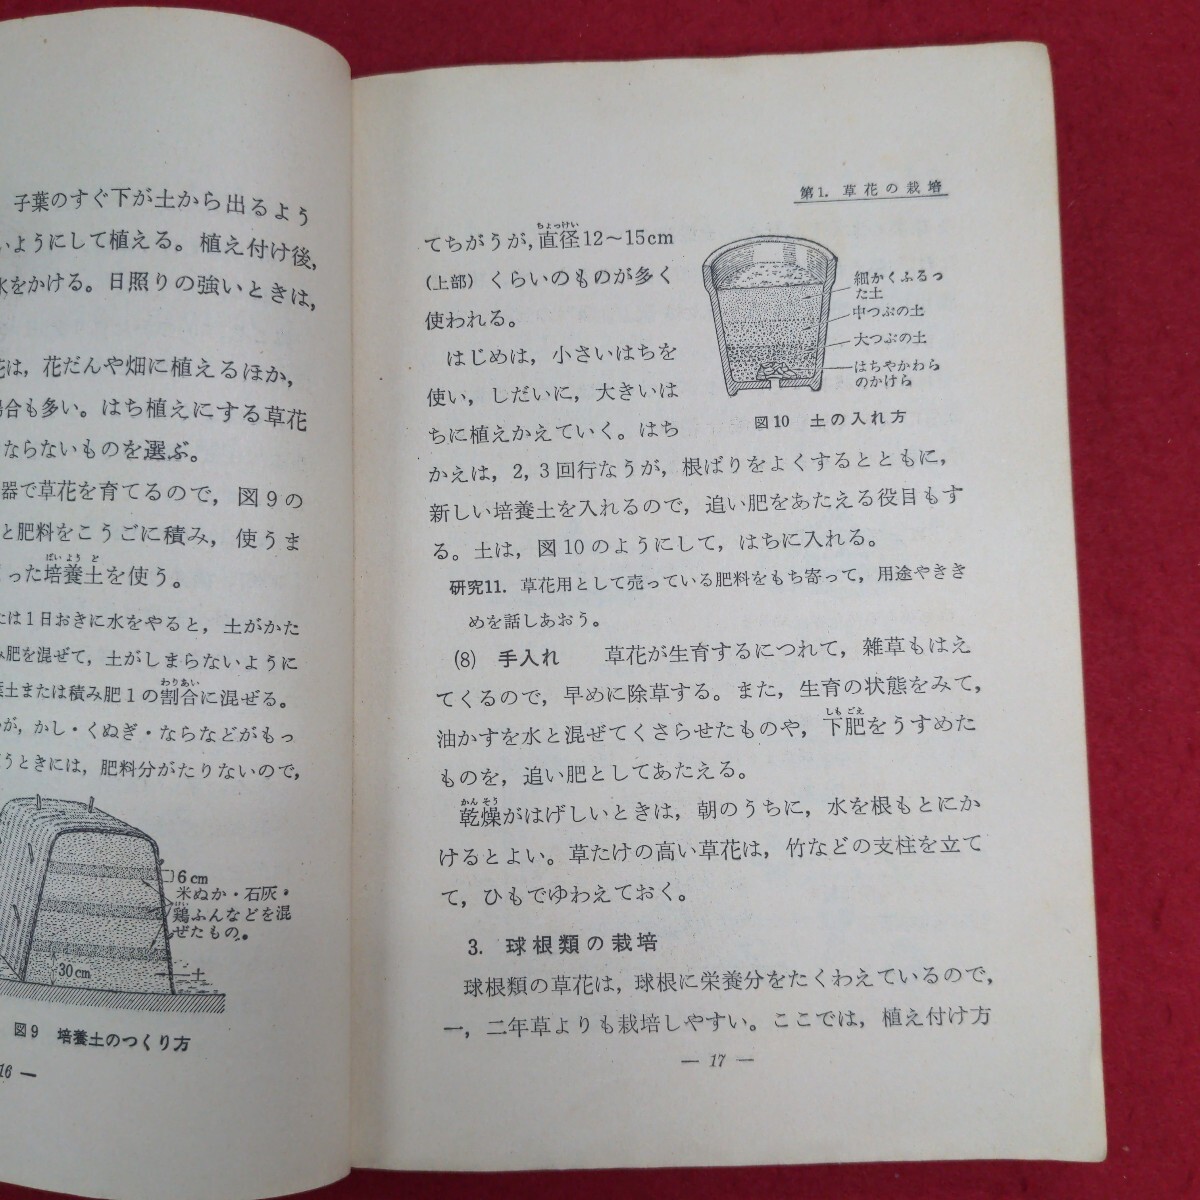 子葉のすぐ下が土から出るよう
いようにして植える。植え付け後,
水をかける。日照りの強いときは,
は, 花だんや畑に植えるほか,
場合も多い。はち植えにする草花
ならないものを選ぶ。
器で草花を育てるので, 図9の
と肥料をこうごに積み, 使うま
った培養土を使う。
ばいようど
たは1日おきに水をやると, 土がかた
み肥を混ぜて, 土がしまらないように
葉土または積み肥1の割合に混ぜる。
わりあい
が, かし・くぬぎ・ならなどがもっ
うときには, 肥料分がたりないので,
6cm
米ぬか・石灰・
鶏ふんなどを混
けい
ぜたもの。
30cm
土
図9 培養土のつくり方
16 —
第1. 草花の栽培
てちがうが, 直径12～15cm
ちょっけい
(上部) くらいのものが多く
使われる。
はじめは, 小さいはちを
使い, しだいに, 大きいは
ちに植えかえていく。はち
細かくふるっ
た土
中つぶの土
大つぶの土
はちやかわら
のかけら
図10 土の入れ方
かえは, 2, 3回行なうが, 根ばりをよくするとともに,
新しい培養土を入れるので, 追い肥をあたえる役目もす
る。土は, 図10のようにして, はちに入れる。
研究11. 草花用として売っている肥料をもち寄って, 用途やきき
めを話しあおう。
(8) 手入れ 草花が生育するにつれて, 雑草もはえ
てくるので, 早めに除草する。また, 生育の状態をみて,
油かすを水と混ぜてくさらせたものや, 下肥をうすめた
しもごえ
ものを, 追い肥としてあたえる。
乾燥がはげしいときは, 朝のうちに, 水を根もとにか
かんそう
けるとよい。草たけの高い草花は, 竹などの支柱を立て
て, ひもでゆわえておく。
3. 球根類の栽培
球根類の草花は, 球根に栄養分をたくわえているので,
一, 二年草よりも栽培しやすい。ここでは, 植え付け方
— 17 —